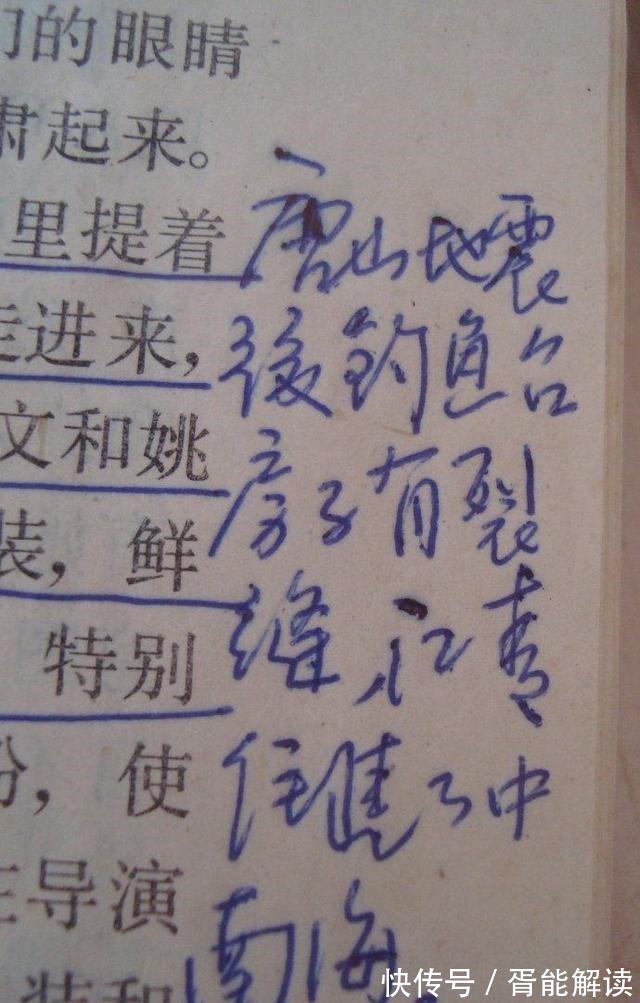 们的眼睛
肃起来。
里提着
走进来，
文和姚
装，鲜
特别
使
导演
装和
唐山地震
後钓鱼台
房子有裂
缝，江青
住進了中
南海。
快传号 / 胥能解读